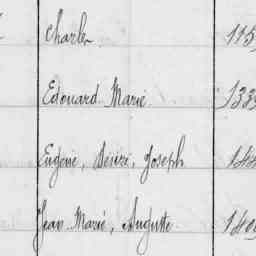 Charles
Edouard Marie 133
Eugène, Désiré, Joseph 144
Jean Marie, Auguste 140